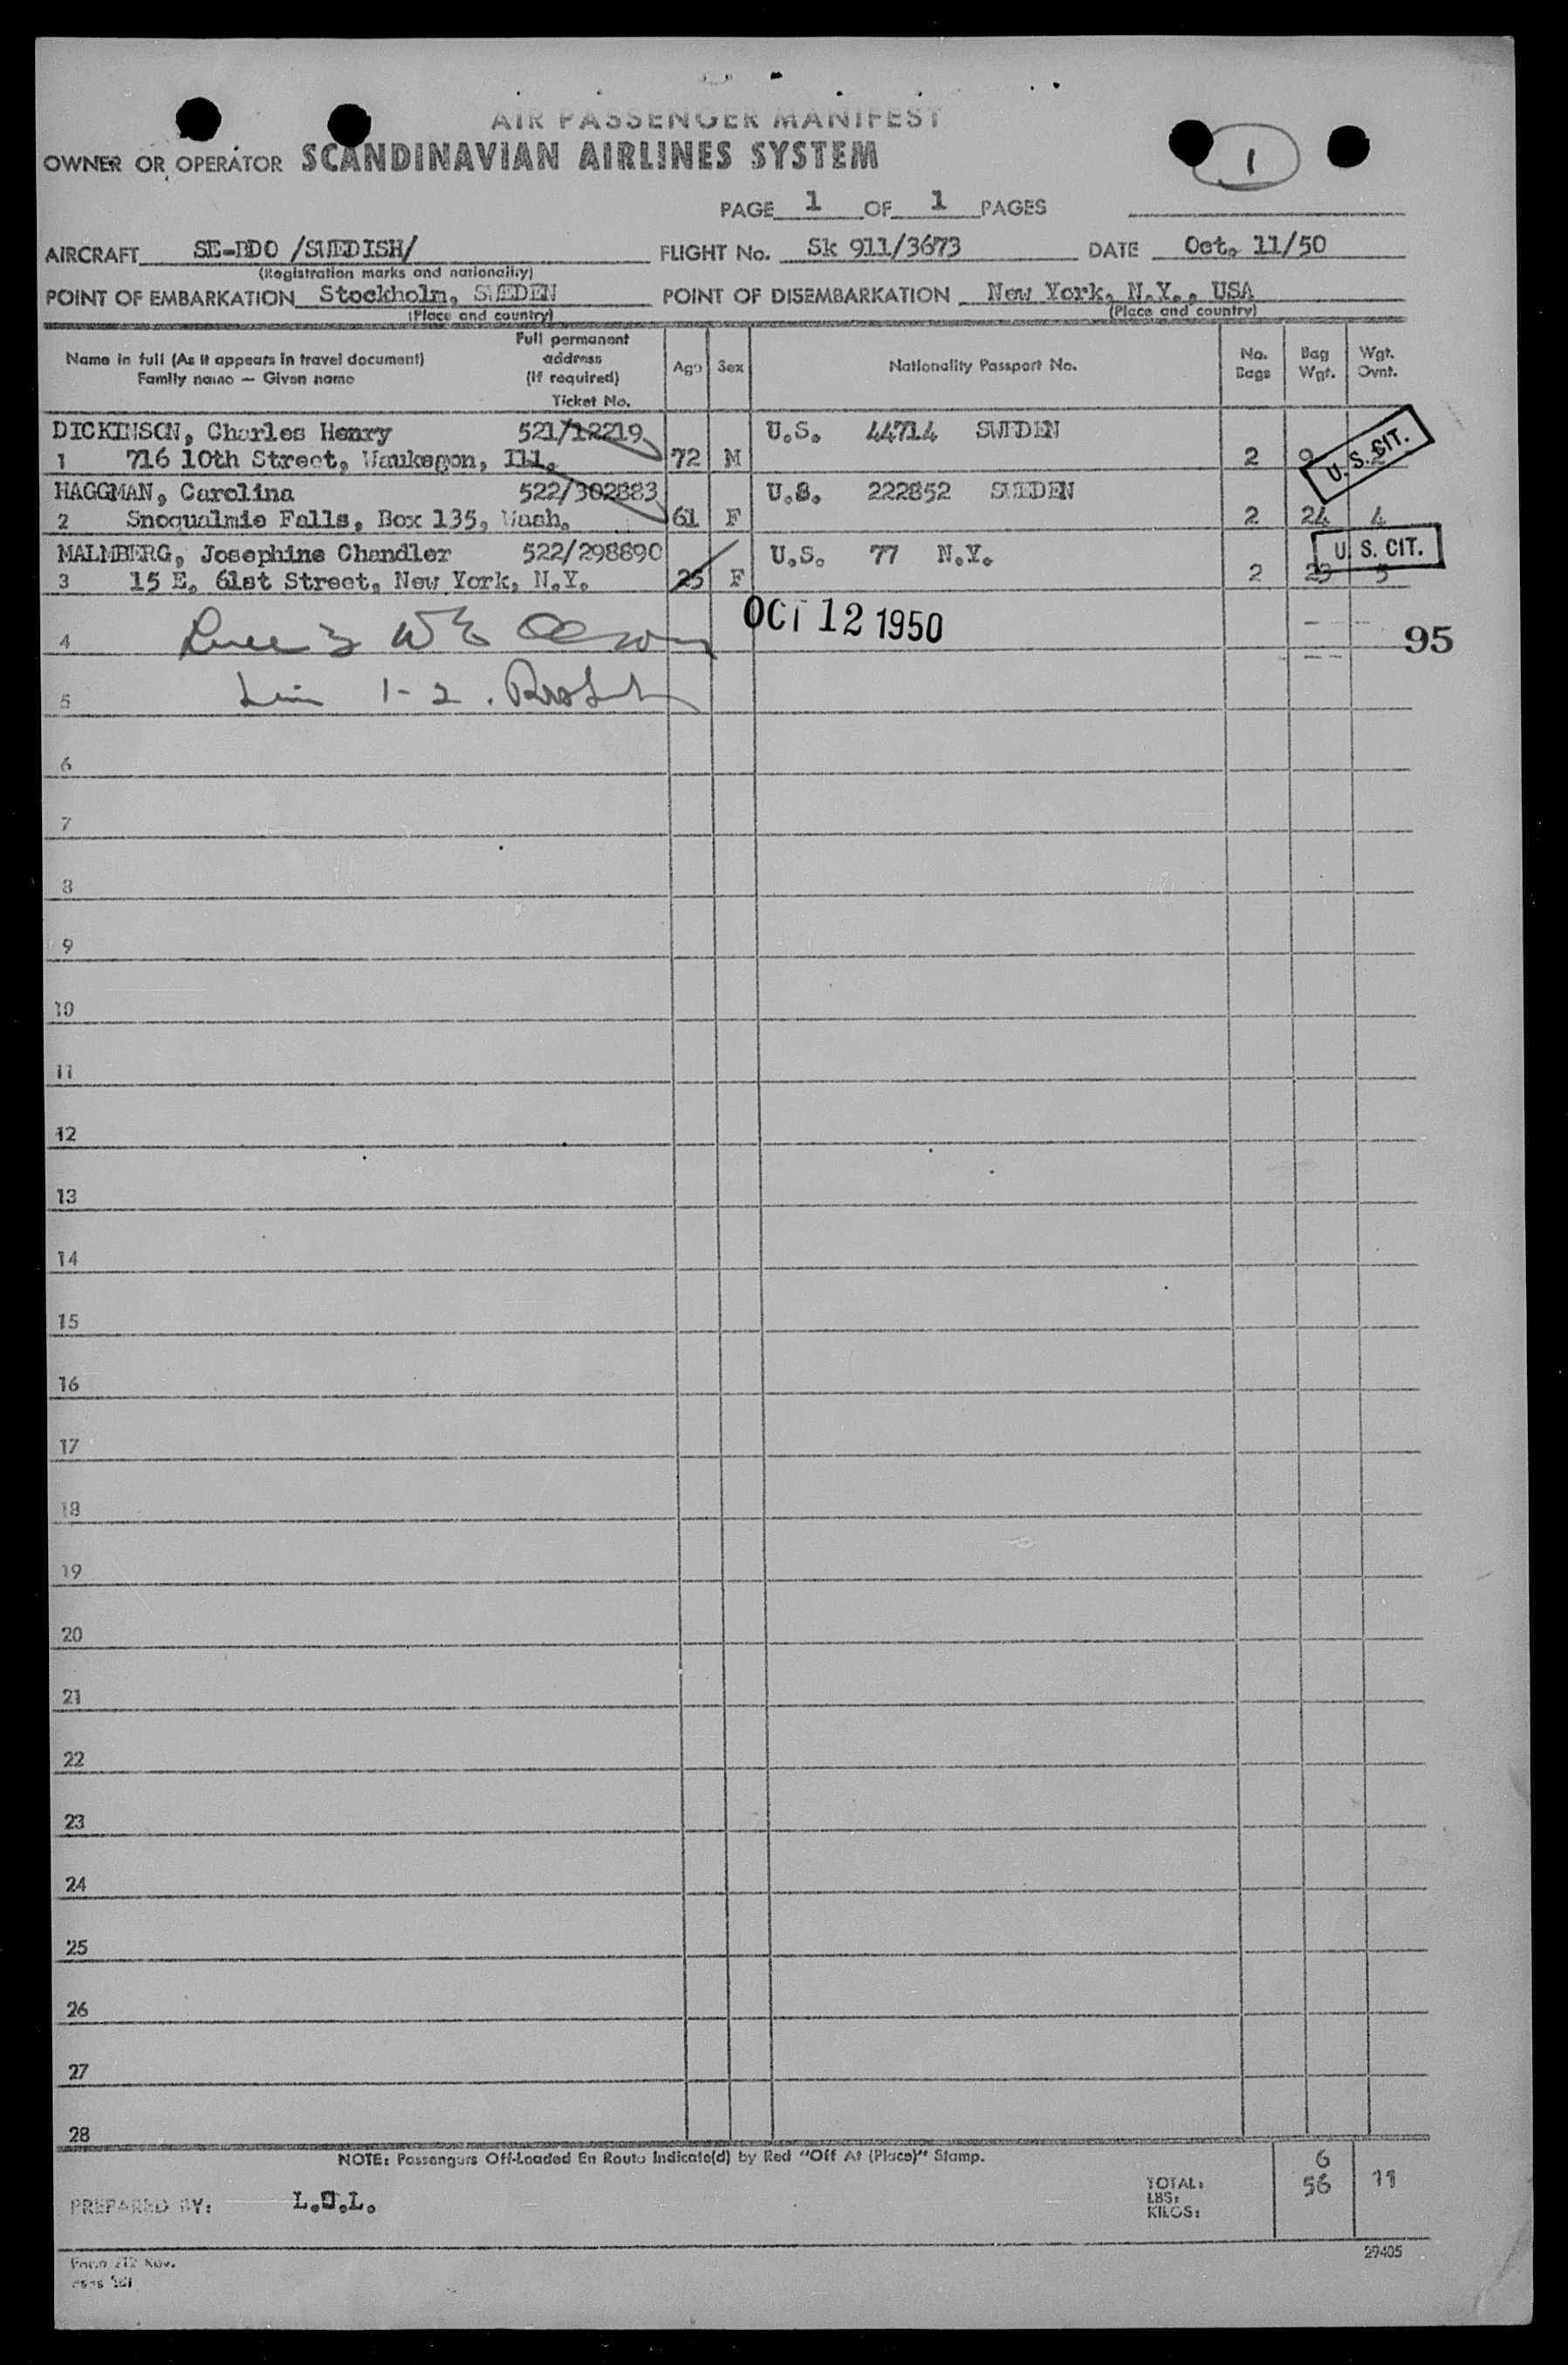 AIR PASSENGER MANIFEST
OWNER OR OPERATOR SCANDINAVIAN AIRLINES SYSTEM
1
PAGE 1 OF 1 PAGES
AIRCRAFT SE-BDO /SWEDISH/ FLIGHT No. Sk 911/3673 DATE Oct. 11/50
(Registration marks and nationality)
POINT OF EMBARKATION Stockholm, SWEDEN POINT OF DISEMBARKATION New York, N.Y., USA
(Place and country) (Place and country)
Name in full (As it appears in travel document) Family name — Given name Full permanent address (if required) Ticket No. Age Sex Nationality Passport No. No. Bags Bag Wgt. Wgt. Ovnt.
DICKINSON, Charles Henry 521/12219 U.S. 44714 SWEDEN
1 716 10th Street, Waukegon, Ill. 72 M 2 9 U. S. CIT.
HAGGMAN, Carolina 522/302883 U.S. 222852 SWEDEN
2 Snoqualmie Falls, Box 135, Wash. 61 F 2 24 4
MALMBERG, Josephine Chandler 522/298890 U.S. 77 N.Y. U. S. CIT.
3 15 E. 61st Street, New York, N.Y. 25 F 2 23 5
OCT 12 1950
4 95
5 1-2
6
7
8
9
10
11
12
13
14
15
16
17
18
19
20
21
22
23
24
25
26
27
28
NOTE: Passengers Off-Loaded En Route Indicate(d) by Red "Off At (Place)" Stamp.
6
TOTAL: 56 11
LBS:
KILOS:
PREPARED BY: L.O.L.
Form 212 Rev.
29405